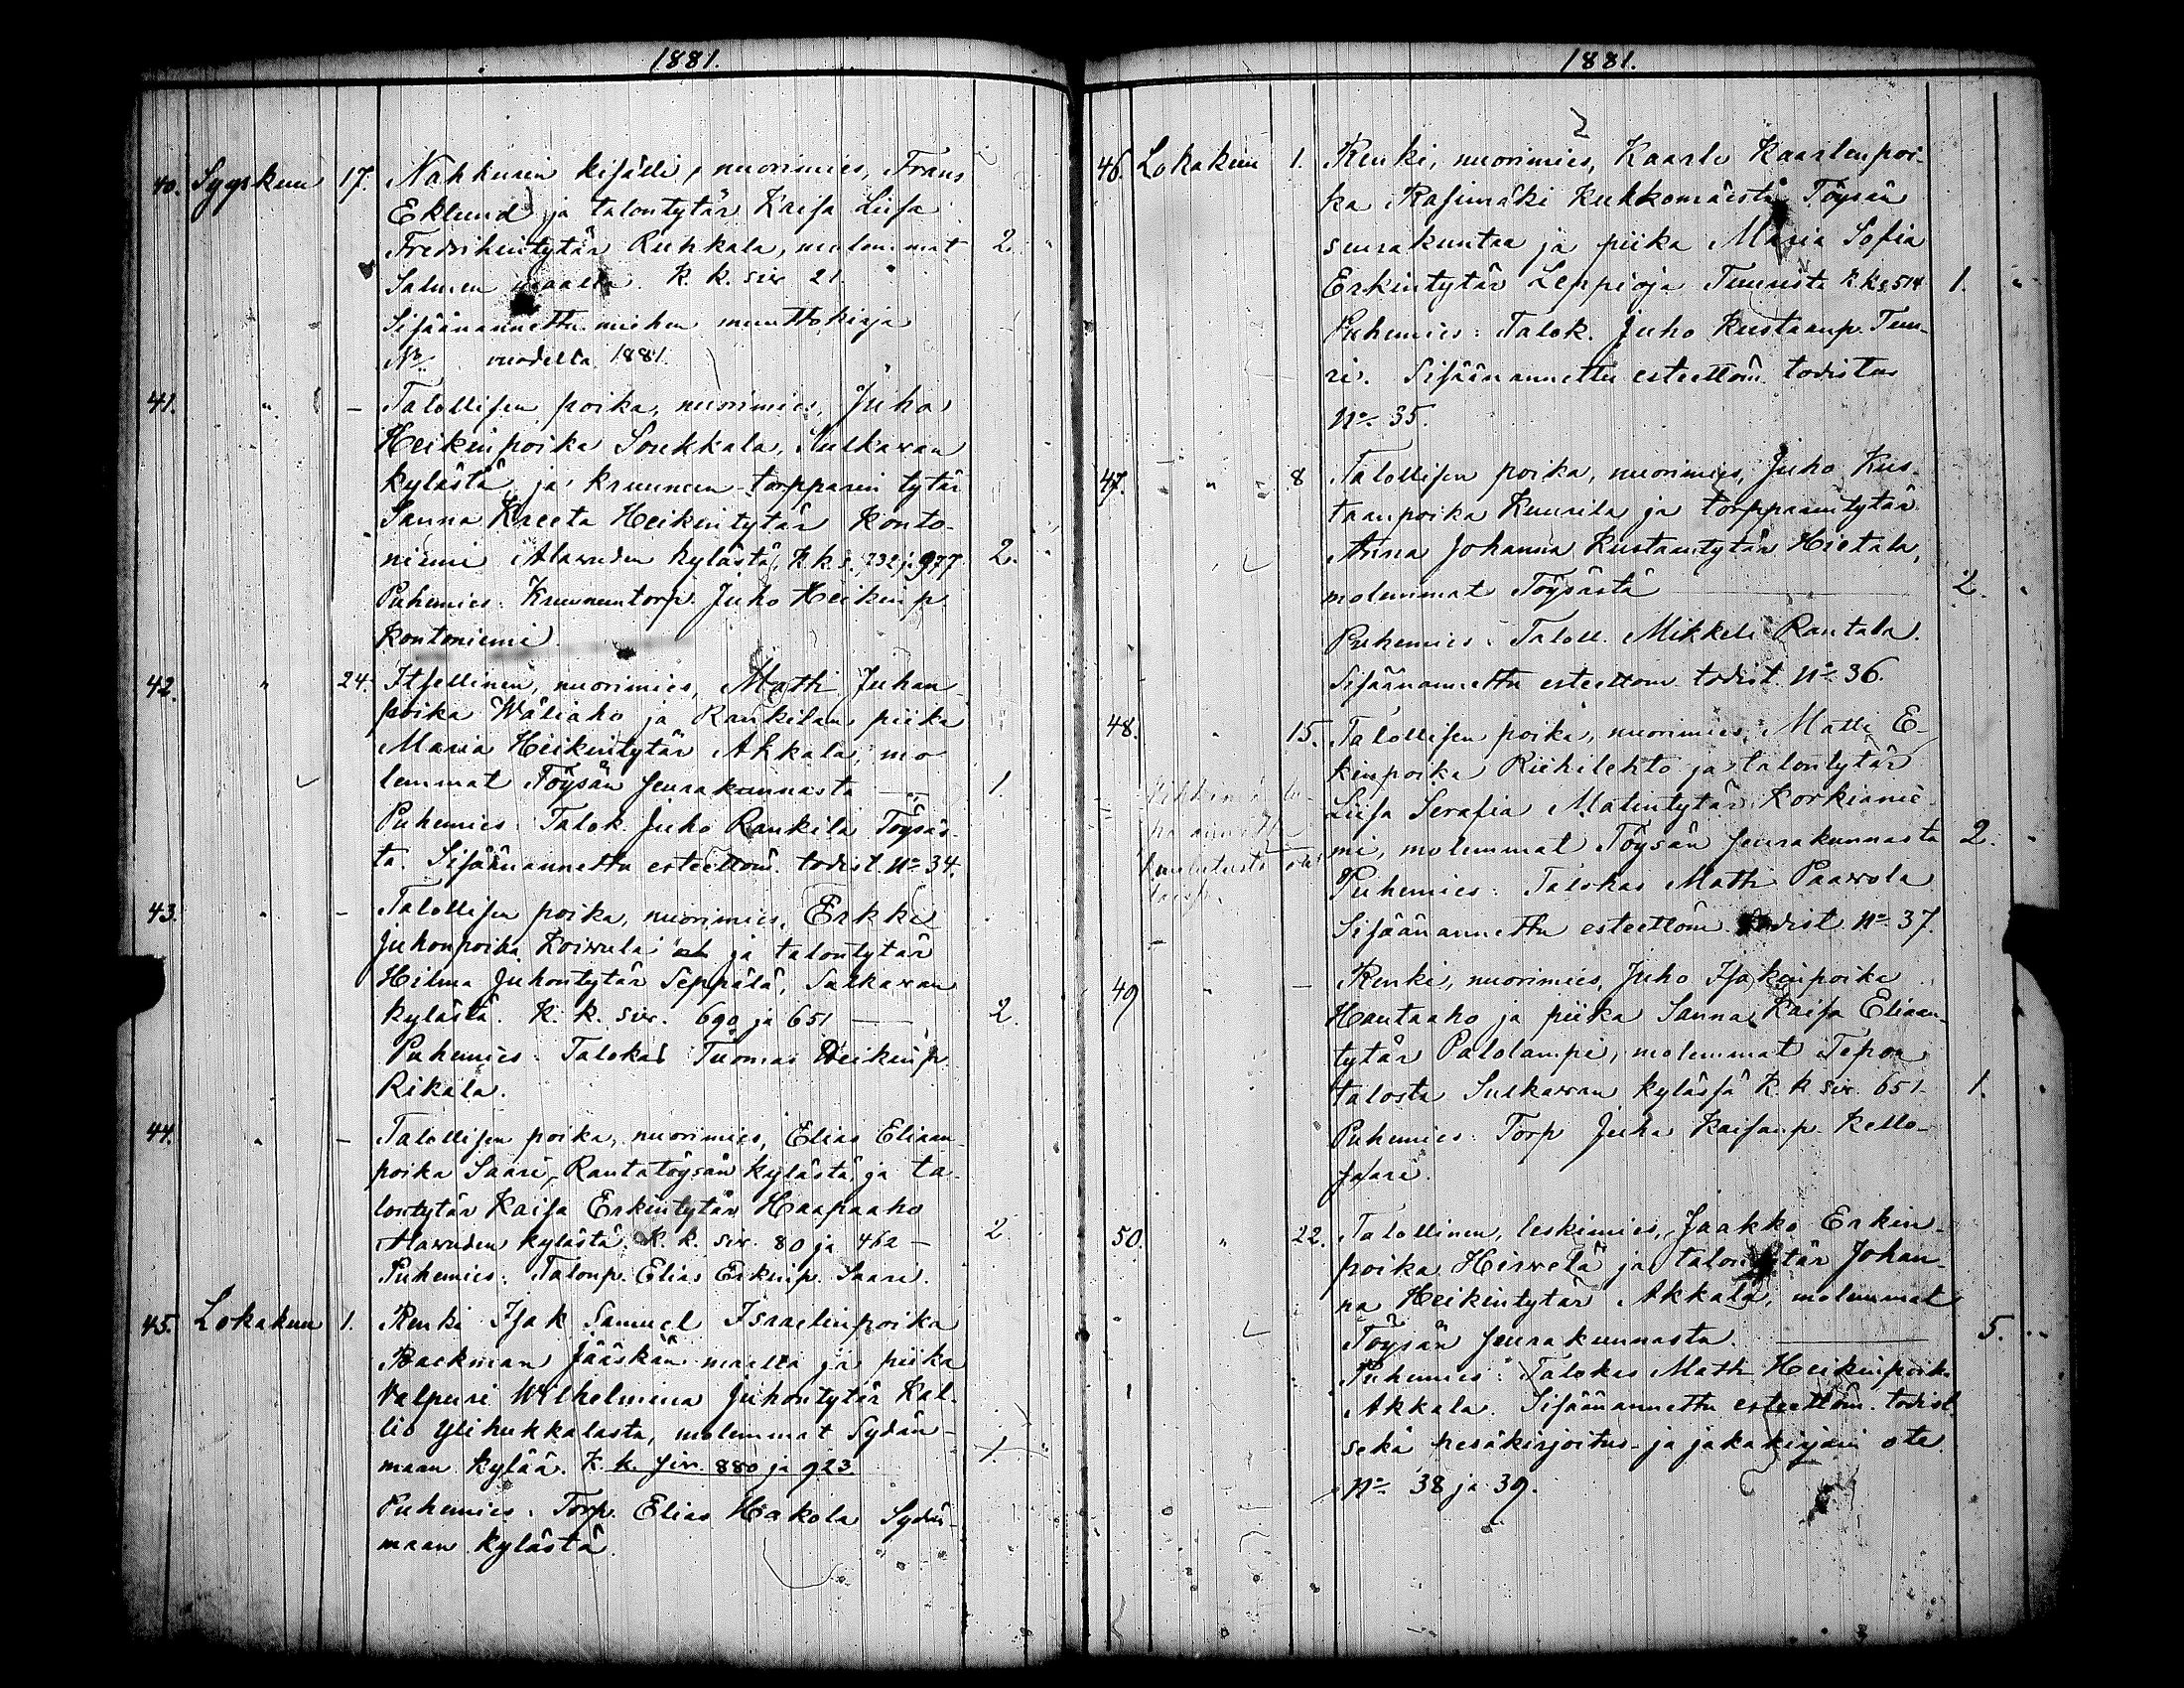 1881.
40. Syyskuu 17. Nahkurin kisälli, nuorimies, Frans
Eklund ja talontytär Kaisa Liisa
Fredrikintytär Ruhkala, molemmat 2.
Salmen maalta. K. k. siv 21.
Sisäänannettu miehen muuttokirja
No vuodelta 1881.
41. " - Talollisen poika, nuorimies, Juho
Heikinpoika Soukkala, Sulkavan
kylästä ja kruunun-torpparin tytär
Sanna Kreeta Heikintytär Konto-
niemi Alavuden kylästä K. k. s. 732 j. 977 2.
Puhemies: Kruununtorp. Juho Heikinp.
Kontoniemi.
42. " 24. Itsellinen, nuorimies, Matti Juhan
poika Wäliaho ja Rankilan piika
Maria Heikintytär Akkala, mo-
lemmat Töysän seurakunnasta — 1.
Puhemies: Talok. Juho Rankila Töysäs-
tä. Sisäänannettu esteettöm. todist. No 34.
43. " - Talollisen poika, nuorimies, Erkki
Juhonpoika Koivula ja talontytär
Hilma Juhontytär Seppälä, Sulkavan
kylästä. K. k. siv. 690 ja 651 — 2.
Puhemies: Talokas Tuomas Heikinp.
Rikala.
44. " - Talollisen poika, nuorimies, Elias Eliaan-
poika Saari, Rantatöysän kylästä, ja ta-
lontytär Kaisa Erkintytär Haapaaho
Alavuden kylästä. K. k. siv. 80 ja 462 — 2
Puhemies: Talonp. Elias Erkinp. Saari.
45. Lokakuu 1. Renki Isak Samuel Israelinpoika
Backman Jääskän maalta ja piika
Valpuri Wilhelmina Juhontytär Kal-
lio Ylihukkalasta, molemmat Sydän-
maan kylää. K. k. siv. 880 ja 923. 1.
Puhemies: Torp. Elias Hakola Sydän-
maan kylästä.
1881.
46. Lokakuu 1. Renki, nuorimies, Kaarlo Kaarlenpoi-
ka Rasimäki Kukkomäestä Töysän
seurakuntaa ja piika Maria Sofia
Erkintytär Leppioja Tuurista K. k. s. 514 1.
Puhemies: Talok. Juho Kustaanp. Tuu-
ri. Sisäänannettu esteettöm. todistus
No 35.
47. " " 8 Talollisen poika, nuorimies, Juho Kus-
taanpoika Kuusila ja torpparintytär
Anna Johanna Kustaantytär Hietala,
molemmat Töysästä — 2.
Puhemies: Taloll. Mikkeli Rantala.
Sisäänannettu esteettöm. todist. No 36.
48. " 15. Talollisen poika, nuorimies, Matti E-
kinpoika Riihilehto ja talontytär
Liisa Serafia Matintytär Korkianie-
mi, molemmat Töysän seurakunnasta 2.
Puhemies: Talokas Matti Paavola
Sisäänannettu esteettöm. todist No 37.
49 " - Renki, nuorimies, Juho Isakinpoika
Hautaaho ja piika Sanna Kaisa Eliaan-
tytär Palolampi, molemmat Tepon
talosta Sulkavan kylässä K. k. siv. 651. 1.
Puhemies: Torp Juha Kaisanp. Kello-
saari.
50. " 22. Talollinen, leskimies, Jaakko Erkin-
poika Hirvelä ja talontytär Johan-
na Heikintytär Akkala, molemmat
Töysän seurakunnasta. — 5.
Puhemies: Talokas Matti Heikinpoika
Akkala. Sisäänannettu esteettöm. todist.
sekä pesäkirjoitus- ja jakokirjain ote
No 38 ja 39.